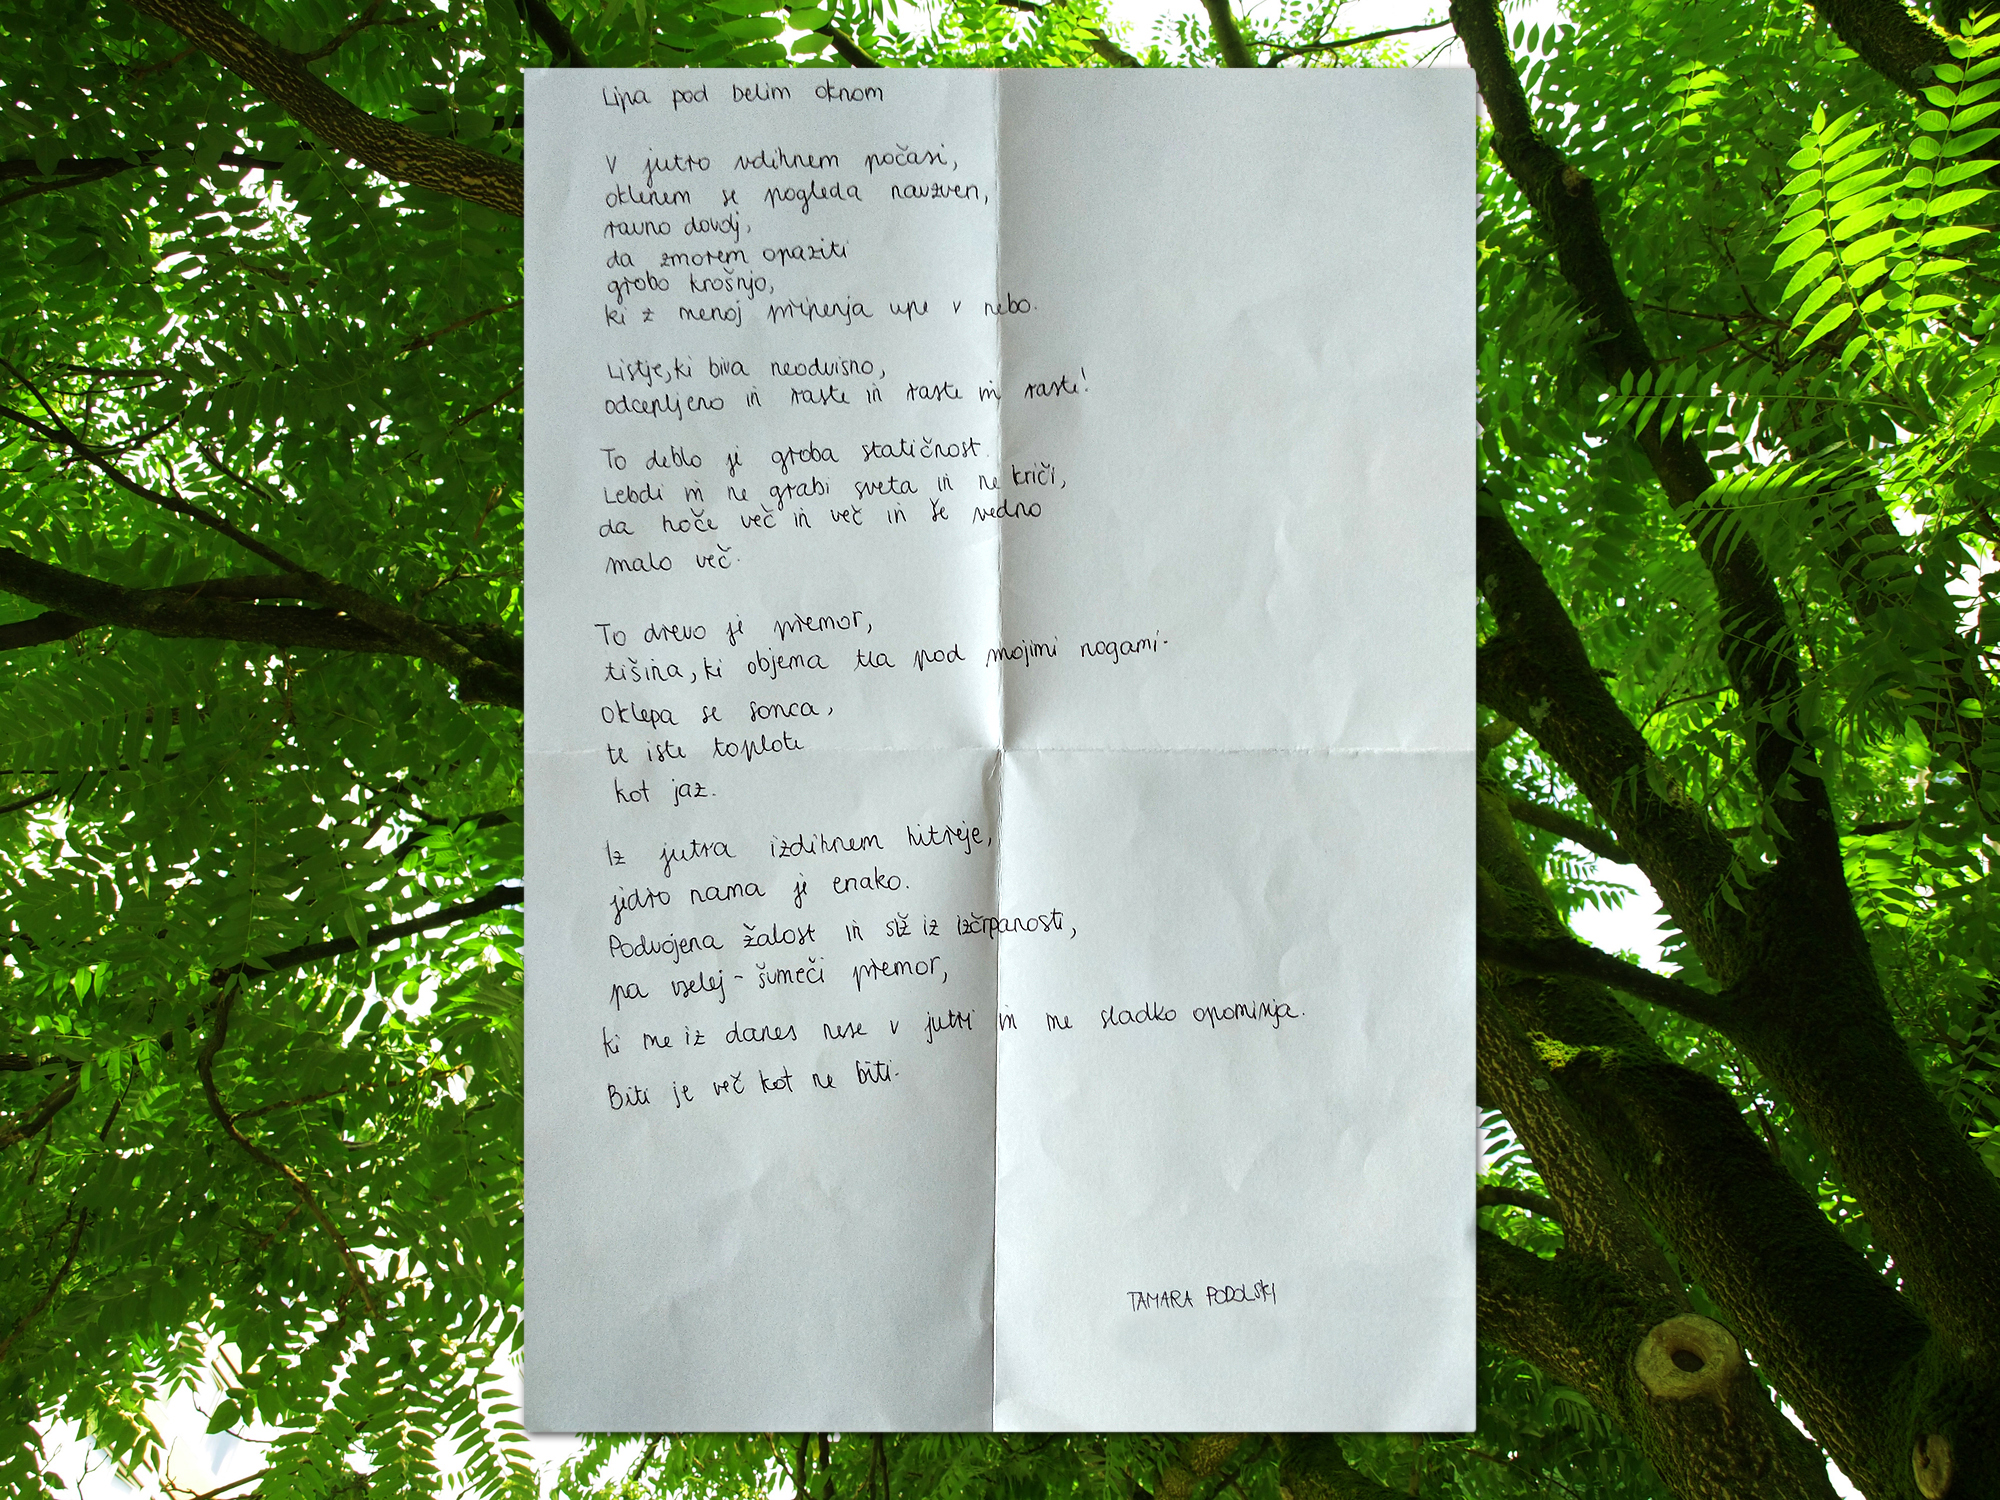 Lipa pod belim oknom
V jutro vdihnem počasi,
oklenem se pogleda navzven,
ravno dovolj,
da zmorem opaziti
grobo krošnjo,
ki z menoj pripenja upe v nebo.
Listje, ki biva neodvisno,
odcepljeno in raste in raste in raste!
To deblo je groba statičnost.
Lebdi in ne grabi sveta in ne kriči,
da hoče več in več in še vedno
malo več.
To drevo je premor,
tišina, ki objema tla pod mojimi nogami.
Oklepa se sonca,
te iste toplote
kot jaz.
Iz jutra izdihnem hitreje,
jedro nama je enako.
Podvojena žalost in iz izčrpanosti,
pa vselej - šumeči premor,
ki me iz danes nese v jutri in me sladko opominja.
Biti je več kot ne biti.
TAMARA PODOLSKI